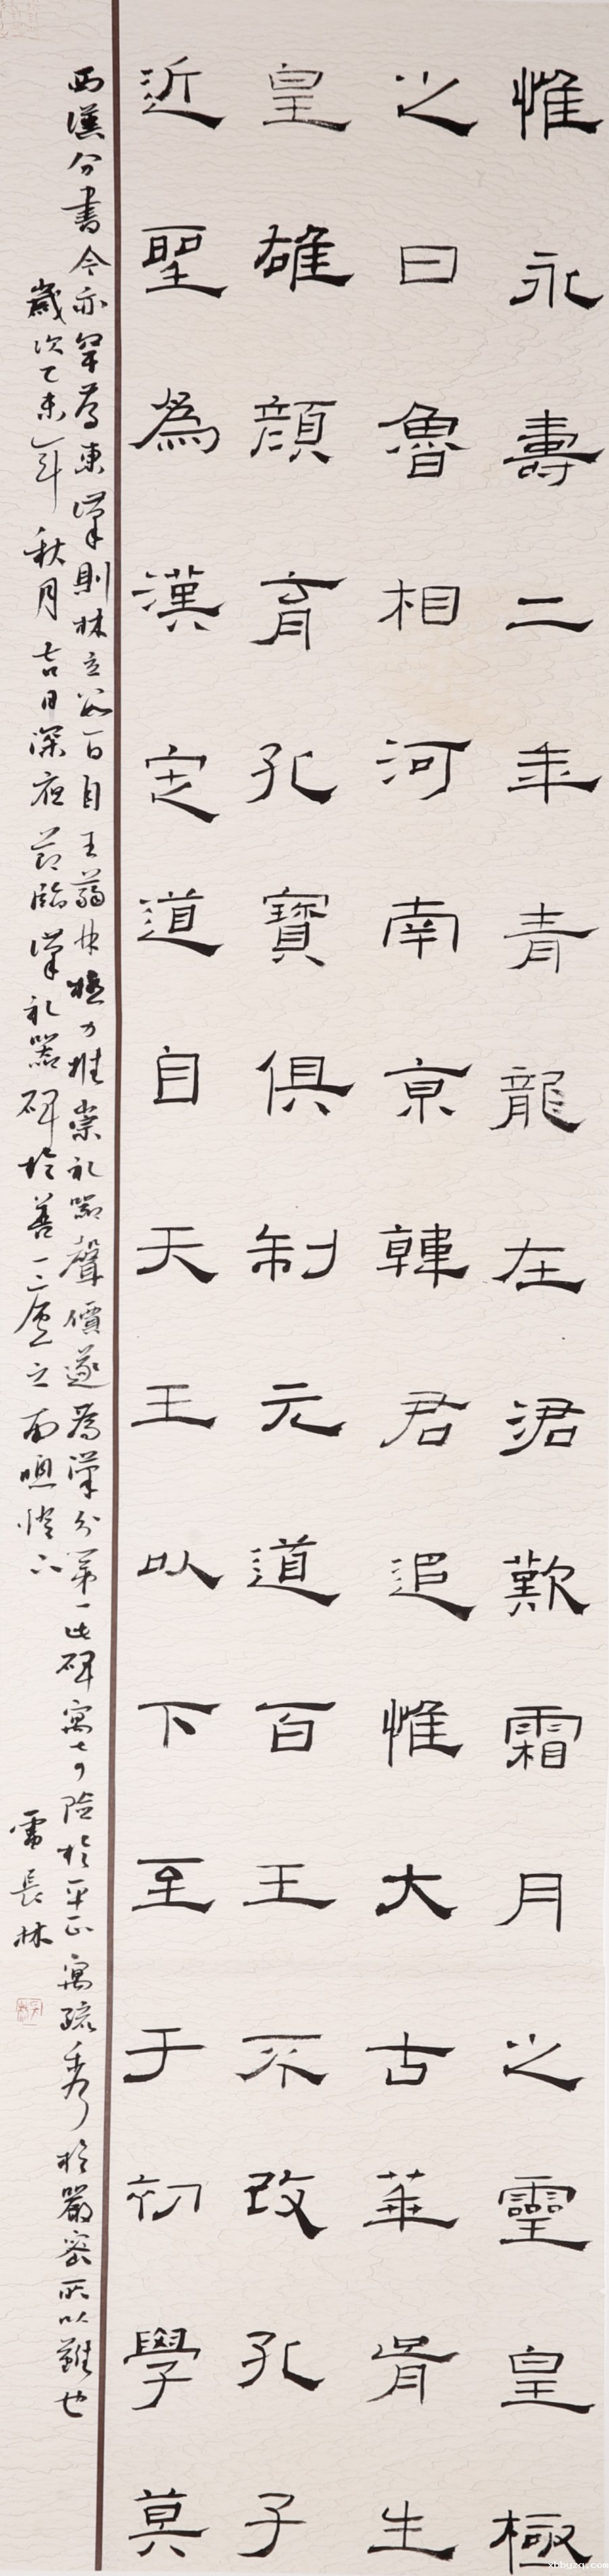 惟永壽二年青龍在涒歎霜月之靈皇極
之日魯相河南京韓君追惟大古華胥生
皇雄顏育孔寶俱制元道百王不改孔子
近聖為漢定道自天王以下至于初學莫
西漢分書今亦罕為東漢則林立數百自王蒻林極力推崇禮器聲價遂為漢分第一此碑寓奇險於平正寓疏秀於嚴密所以難也
歲次乙未年秋月吉日深夜節臨漢禮器碑於善一廬之南窗燈下
雷長林